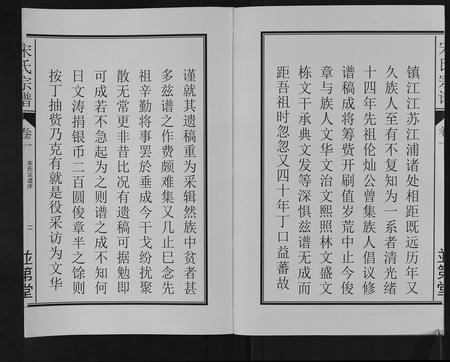 宋氏宗谱
卷一
镇江江苏江浦诸处相距既远历年又
久族人至有不复知为一系者清光绪
十四年先祖伦灿公曾集族人倡议修
谱稿成将筹赀开刷值岁荒中止今俊
章与族人文华文治文熙照林文盛文
栋文干承典文发等深惧兹谱无成而
距吾祖时忽忽又四十年丁口益蕃故
並第堂
谨就其遗稿重为采辑然族中贫者甚
多兹谱之作费颇难集又几止巳念先
祖辛勤将事罢於垂成今干戈纷扰聚
散无常更非昔比况有遗稿可据勉即
可成若不急起为之则谱之成不知何
日文涛捐银币二百圆俊章半之馀则
按丁抽赀乃克有就是役采访为文华
宋氏宗谱
卷一
宋氏宗谱序
二
並第堂